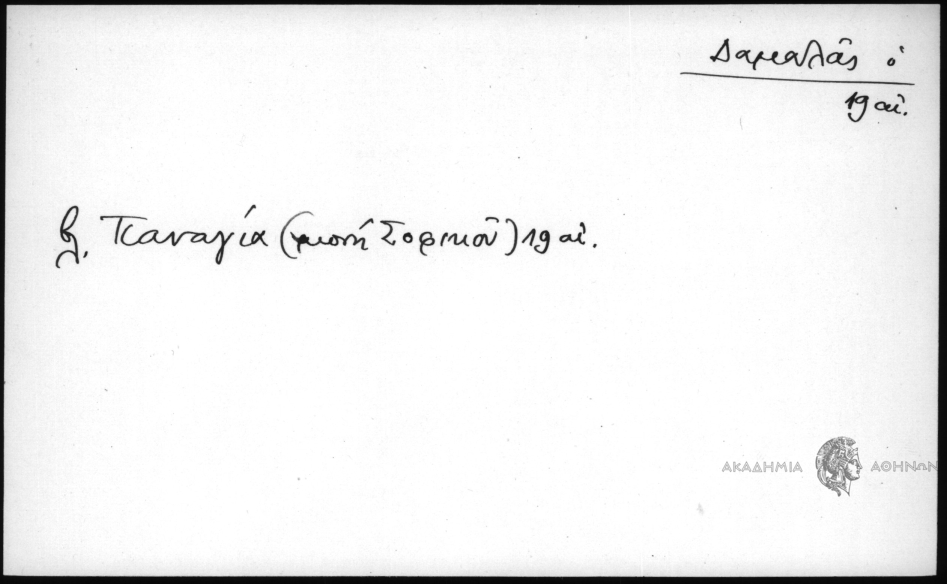 Δαμαλᾶς ὁ
19 αἰ.
βλ. Παναγία (μονή Σοφικοῦ) 19 αἰ.
ΑΚΑΔΗΜΙΑ ΑΘΗΝΩΝ